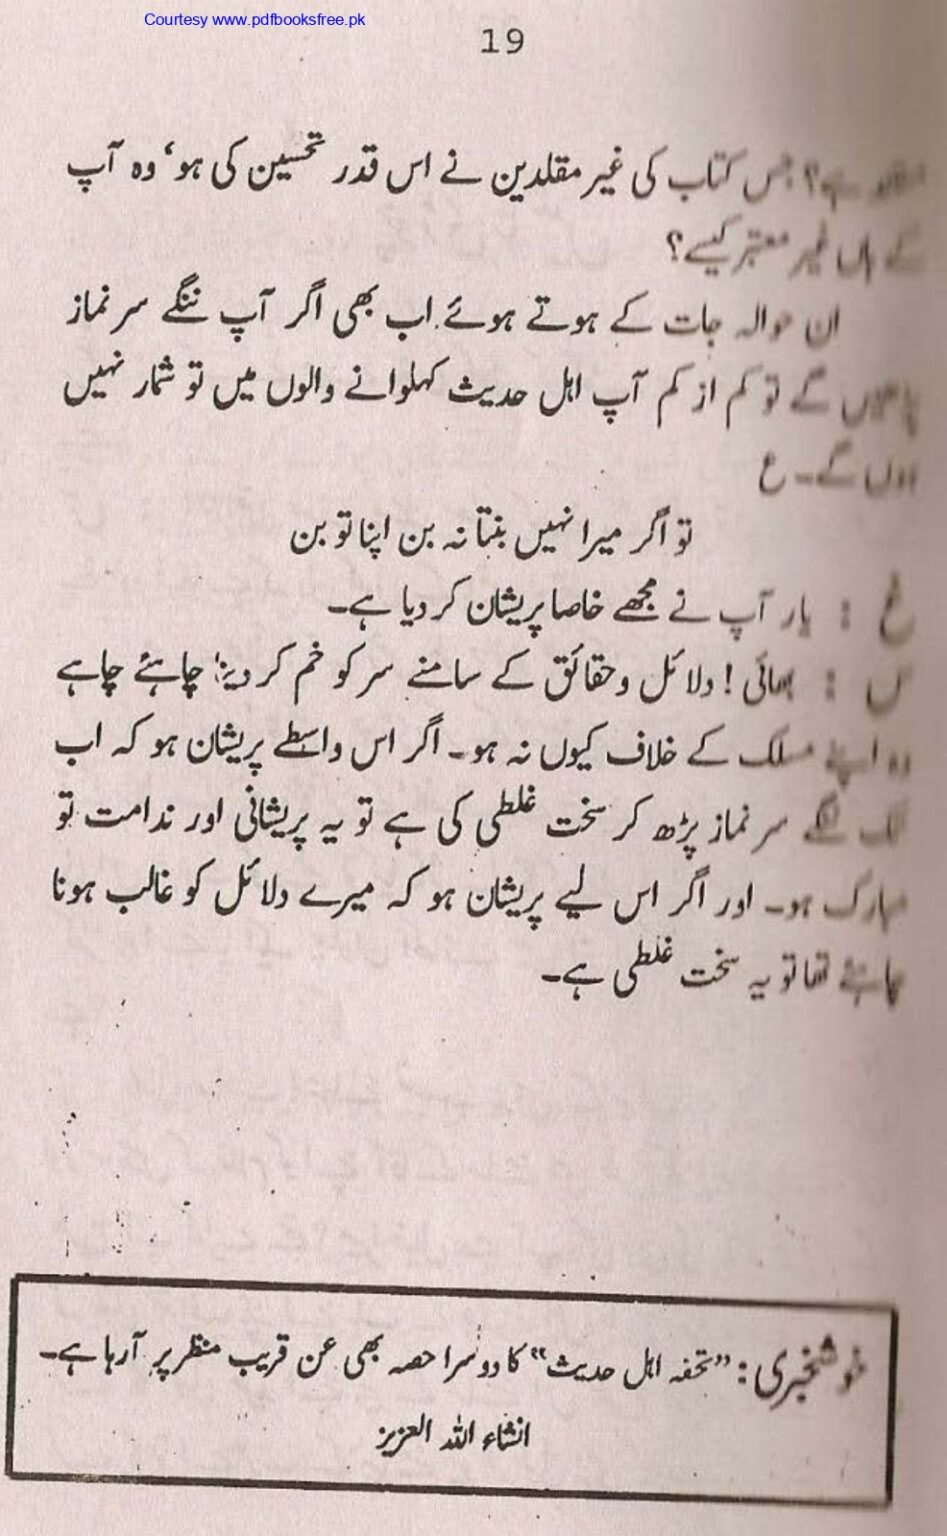 Courtesy www.pdfbooksfree.pk
19
ہے؟ جس کتاب کی غیر مقلدین نے اس قدر تحسین کی ہو، وہ آپ
کے ہاں غیر معتبر کیسے؟
ان حوالہ جات کے ہوتے ہوئے اب بھی اگر آپ ننگے سر نماز
پڑھیں گے تو کم از کم آپ اہل حدیث کہلوانے والوں میں تو شمار نہیں
ہوں گے۔ ع
تو اگر میرا نہیں بنتا نہ بن اپنا تو بن
غ : یار آپ نے مجھے خاصا پریشان کر دیا ہے۔
س : بھائی! دلائل و حقائق کے سامنے سر کو خم کر دینا چاہئے چاہے
وہ اپنے مسلک کے خلاف کیوں نہ ہو۔ اگر اس واسطے پریشان ہو کہ اب
تک ننگے سر نماز پڑھ کر سخت غلطی کی ہے تو یہ پریشانی اور ندامت تو
مبارک ہو۔ اور اگر اس لیے پریشان ہو کہ میرے دلائل کو غالب ہونا
چاہئے تھا تو یہ سخت غلطی ہے۔
خوشخبری : "تحفہ اہل حدیث" کا دوسرا حصہ بھی عن قریب منظر پر آرہا ہے۔
انشاء اللہ العزیز